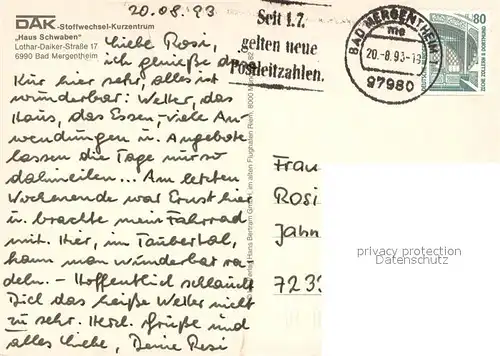 20.08.93
DAK-Stoffwechsel-Kurzentrum
„Haus Schwaben"
Lothar-Daiker-Straße 17
6990 Bad Mergentheim
Liebe Rosi,
ich genieße diese
Kur hier sehr, alles ist
wunderbar: Wetter, das
Haus, das Essen, viele An-
wendungen u. Angebote
lassen die Tage nur so
dahineilen... Am letzten
Wochenende war Ernst hier
u. brachte mein Fahrrad
mit. Hier, im Taubertal,
kann man wunderbar ra-
deln. – Hoffentlich schlaucht
Dich das heiße Wetter nicht
zu sehr. Herzl. Grüße und
alles Liebe, Deine Resi
Seit 1.7.
gelten neue
Postleitzahlen.
BAD MERGENTHEIM 1
me
20.-8.93-19
97980
80
ZECHE ZOLLERN II DORTMUND
Hans Bertram GmbH, im alten Flughafen Riem, 8000 München
Frau
Rosi
Jahn
723
privacy protection
Datenschutz